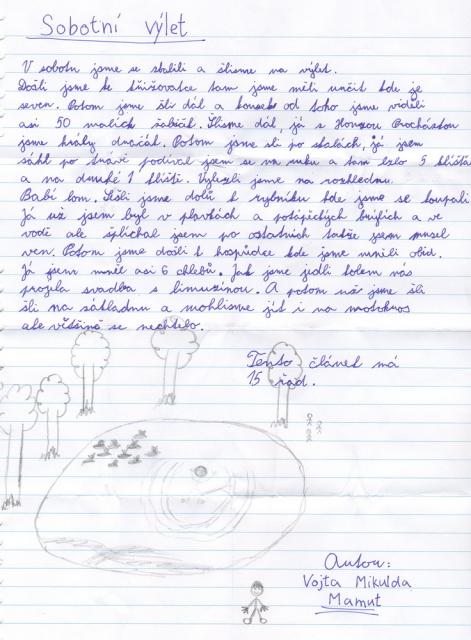 Sobotní výlet
V sobotu jsme se sbalili a šlisme na výlet.
Došli jsme ke křižovatce tam jsme měli určit kde je
sever. Potom jsme šli dál a kousek od toho jsme viděli
asi 50 malich žabiček. Šlisme dál, já s Honzou Procháskou
jsme hrály dračák. Potom jsme šli po skalách, já jsem
sáhl po trávě podíval jsem se na ruku a tam lezlo 5 klíšťat
a na druhé 1 klíště. Vylezli jsme na rozhlednu.
Babí lom. Sešli jsme dolů k rybníku kde jsme se koupali
Já už jsem byl v plavkách a potápěcích brýlích a ve
vodě ale šplíchal jsem po ostatních takže jsem musel
ven. Potom jsme došli k hospůdce kde jsme měli oběd.
Já jsem měl asi 6 chlebů. Jak jsme jedli kolem nás
projela svadba s limuzínou. A potom už jsme šli
šli na základnu a mohlisme jít i na motokros
ale většině se nechtělo.
Tento článek má
15 řad.
Autor:
Vojta Mikulda
Mamut